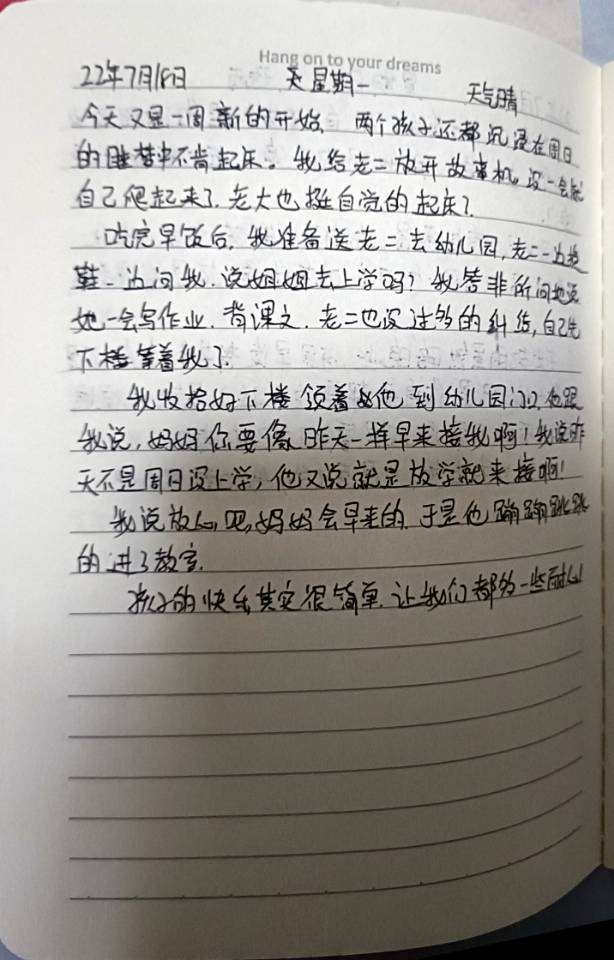 Hang on to your dreams
22年7月18日 天 星期一 天气晴
今天又是一周新的开始, 两个孩子还都沉浸在周日
的睡梦中不肯起床。我给老二放开故事机, 没一会就
自己爬起来了. 老大也挺自觉的起床了.
吃完早饭后, 我准备送老二去幼儿园, 老二一边换
鞋一边问我. 说姐姐去上学吗? 我答非所问地说
她一会写作业. 背课文. 老二也没过多的纠结, 自己先
下楼等着我了.
我收拾好下楼 领着他 到幼儿园门口, 他跟
我说, 妈妈你要像昨天一样早来接我啊! 我说昨
天不是周日没上学, 他又说就是放学就来接啊!
我说放心吧, 妈妈会早来的. 于是他蹦蹦跳跳
的进了教室.
孩子的快乐其实很简单. 让我们都多一些耐心!